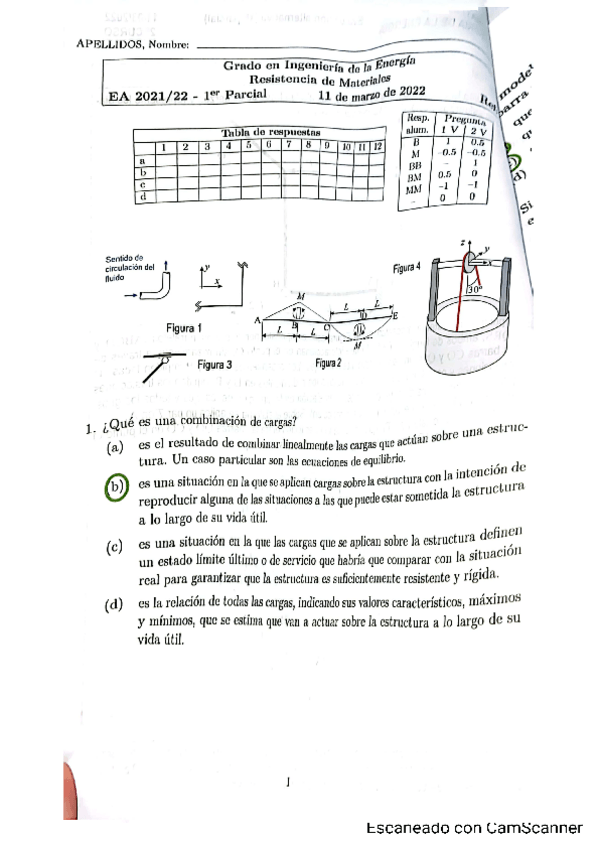 APELLIDOS, Nombre:
Grado en Ingeniería de la Energía
Resistencia de Materiales
EA 2021/22 - 1er Parcial 11 de marzo de 2022
Tabla de respuestas
1 2 3 4 5 6 7 8 9 10 11 12
a
b
c
d
Resp. Pregunta
alum. 1 V 2 V
B 1 0.5
M -0.5 -0.5
BB - 1
BM 0.5 0
MM -1 -1
- 0 0
barra
que
d)
Si
Sentido de
circulación del
fluido
y
x
Figura 1
Figura 3
M
A B C D E
L L L L
M
Figura 2
Figura 4
z
y
x
30°
1. ¿Qué es una combinación de cargas?
(a) es el resultado de combinar linealmente las cargas que actúan sobre una estruc-
tura. Un caso particular son las ecuaciones de equilibrio.
(b) es una situación en la que se aplican cargas sobre la estructura con la intención de
reproducir alguna de las situaciones a las que puede estar sometida la estructura
a lo largo de su vida útil.
(c) es una situación en la que las cargas que se aplican sobre la estructura definen
un estado límite último o de servicio que habría que comparar con la situación
real para garantizar que la estructura es suficientemente resistente y rígida.
(d) es la relación de todas las cargas, indicando sus valores característicos, máximos
y mínimos, que se estima que van a actuar sobre la estructura a lo largo de su
vida útil.
1
Escaneado con CamScanner